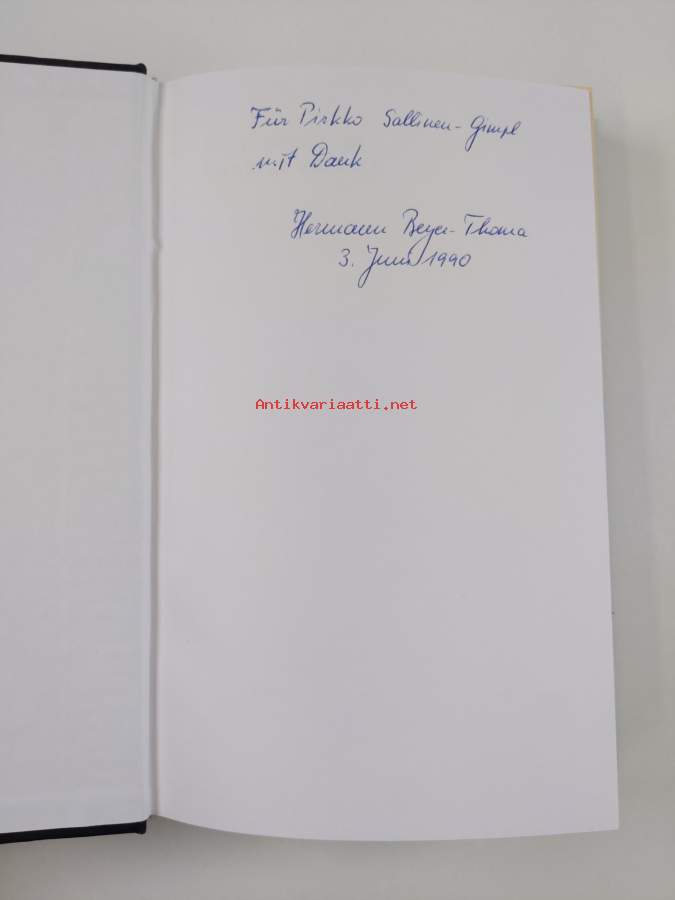 Für Pirkko Sallinen-Gimpl
mit Dank
Hermann Beyer-Thoma
3. Juni 1990
Antikvariaatti.net